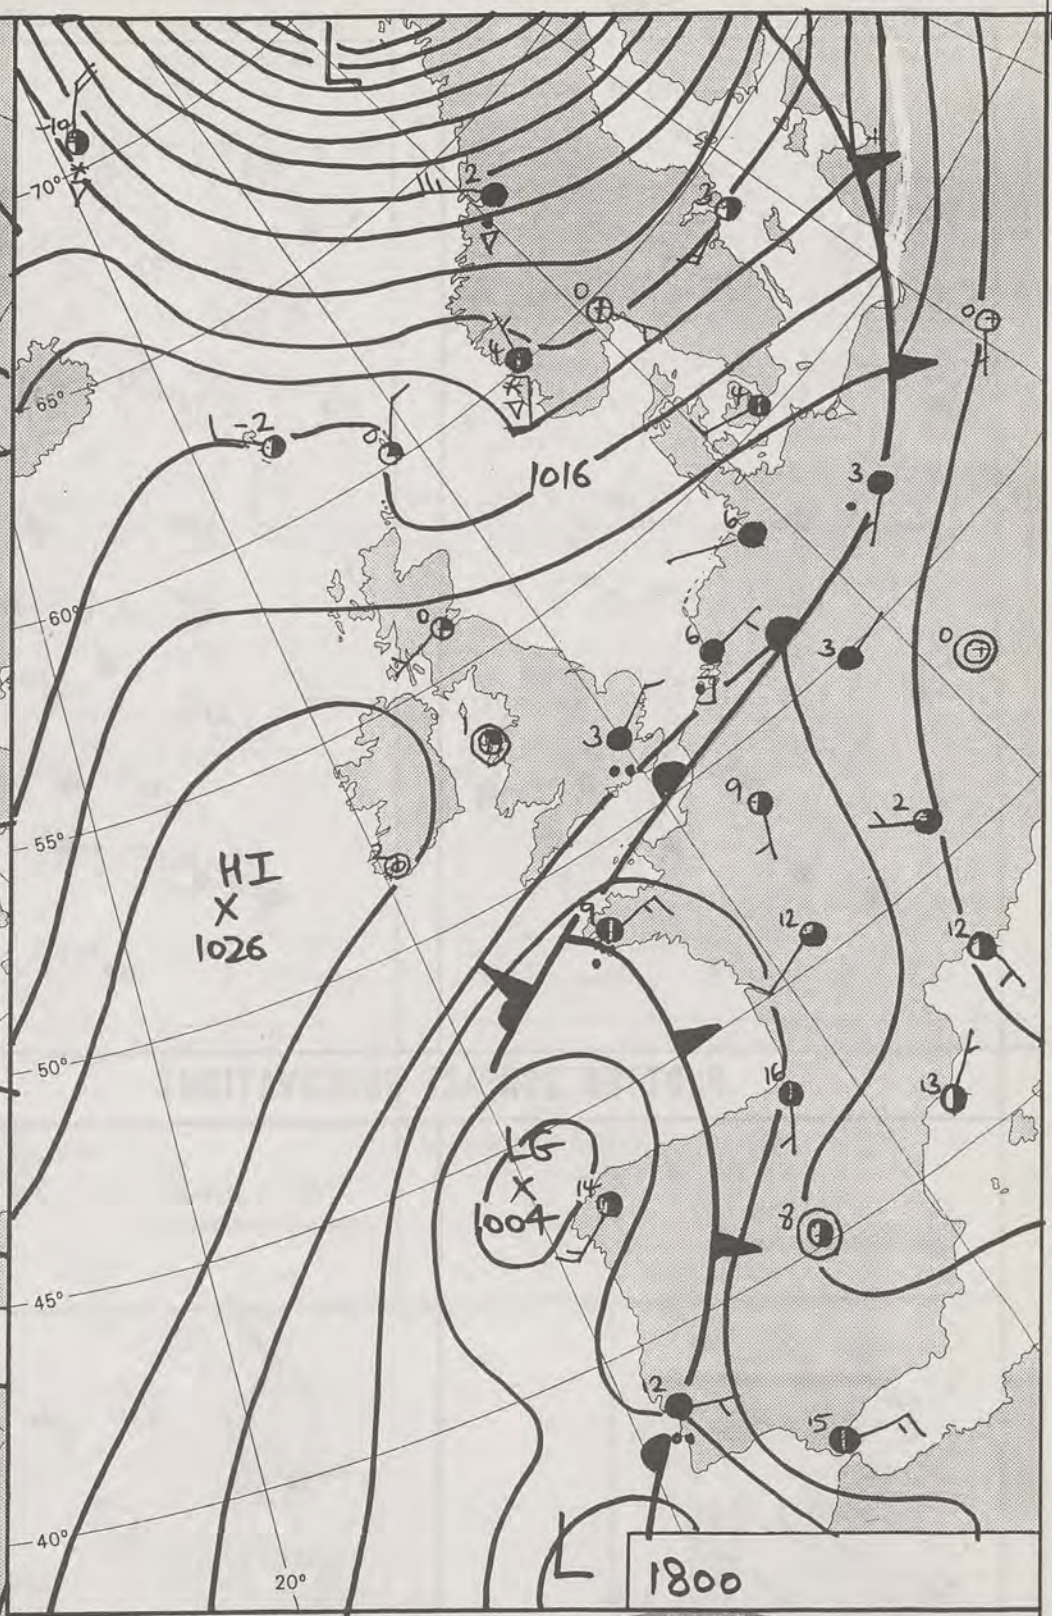 L
-10
70°
2
3
0
0
4
65°
4
-2
0
1016
3
6
60°
0
6
3
0
1
3
9
2
55°
2
HI
X
1026
9
12
12
50°
16
13
LG
X
1004
14
8
45°
12
15
40°
L
20°
1800